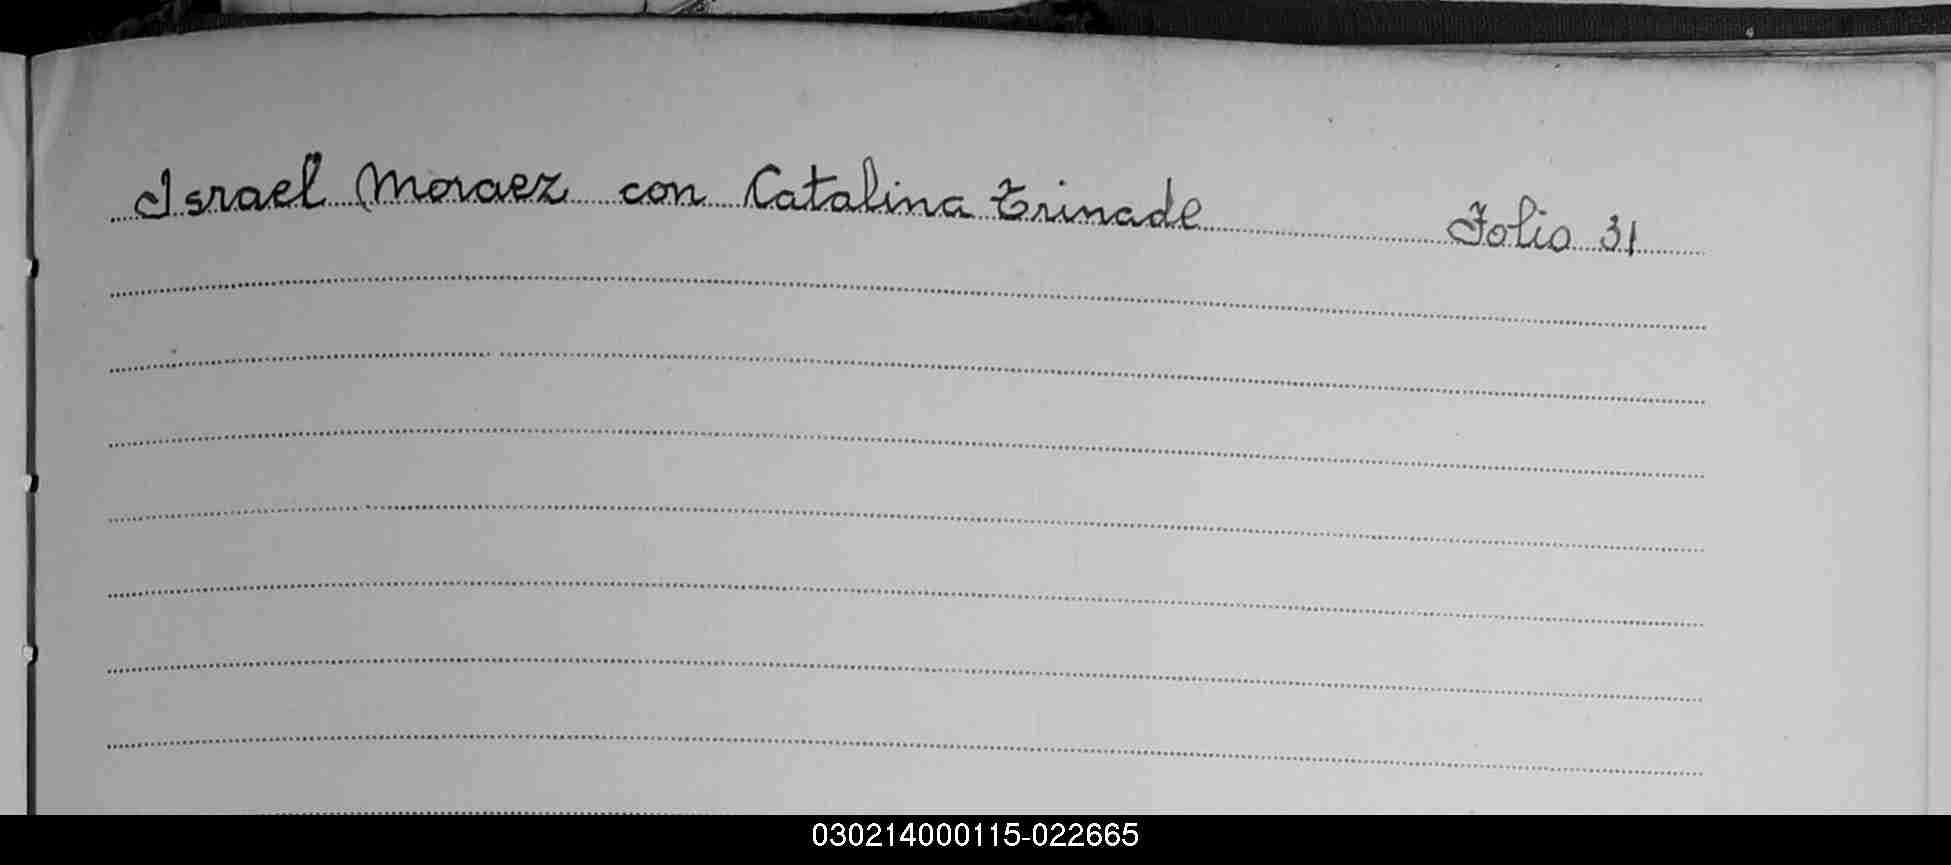 Israel Moraez con Catalina Trinade Folio 31
030214000115-022665